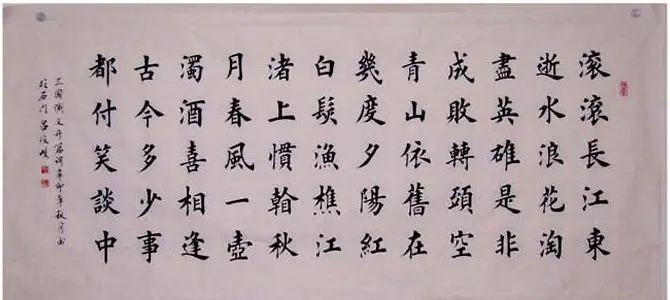 滾滾長江東
逝水浪花淘
盡英雄是非
成敗轉頭空
青山依舊在
幾度夕陽紅
白髮漁樵江
渚上慣翰秋
月春風一壺
濁酒喜相逢
古今多少事
都付笑談中
三國演义开篇词辛卯年秋月书
於石门吕俊